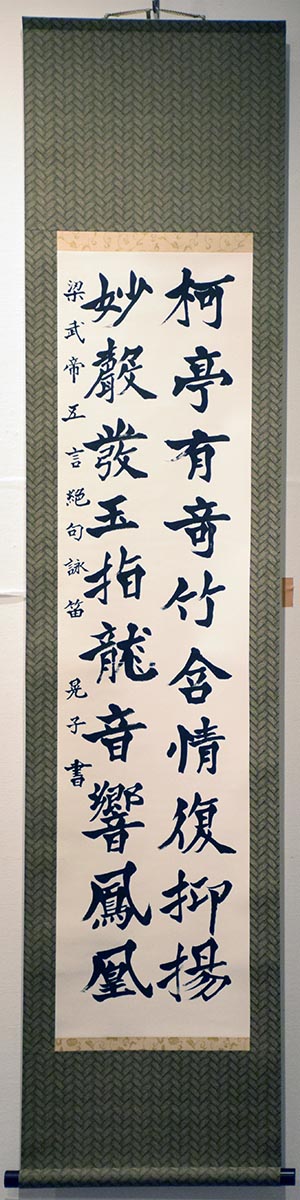 柯亭有奇竹含情復抑揚
妙聲發玉指龍音響鳳凰
梁武帝五言絕句詠笛 晃子書